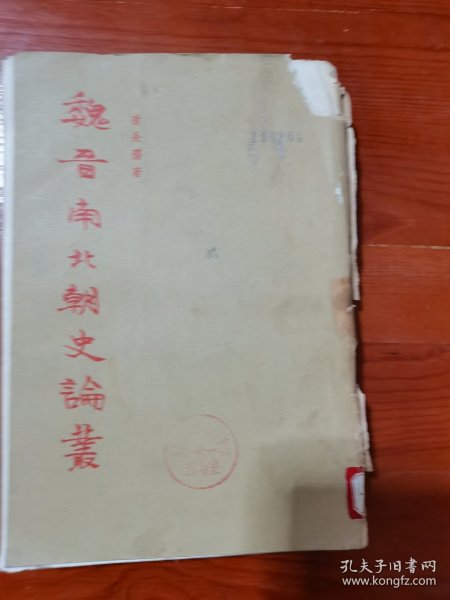 魏晋南北朝史論叢
唐長孺著
孔夫子旧书网
www.kongfz.com